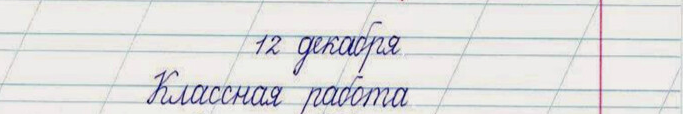 12 декабря
Классная работа